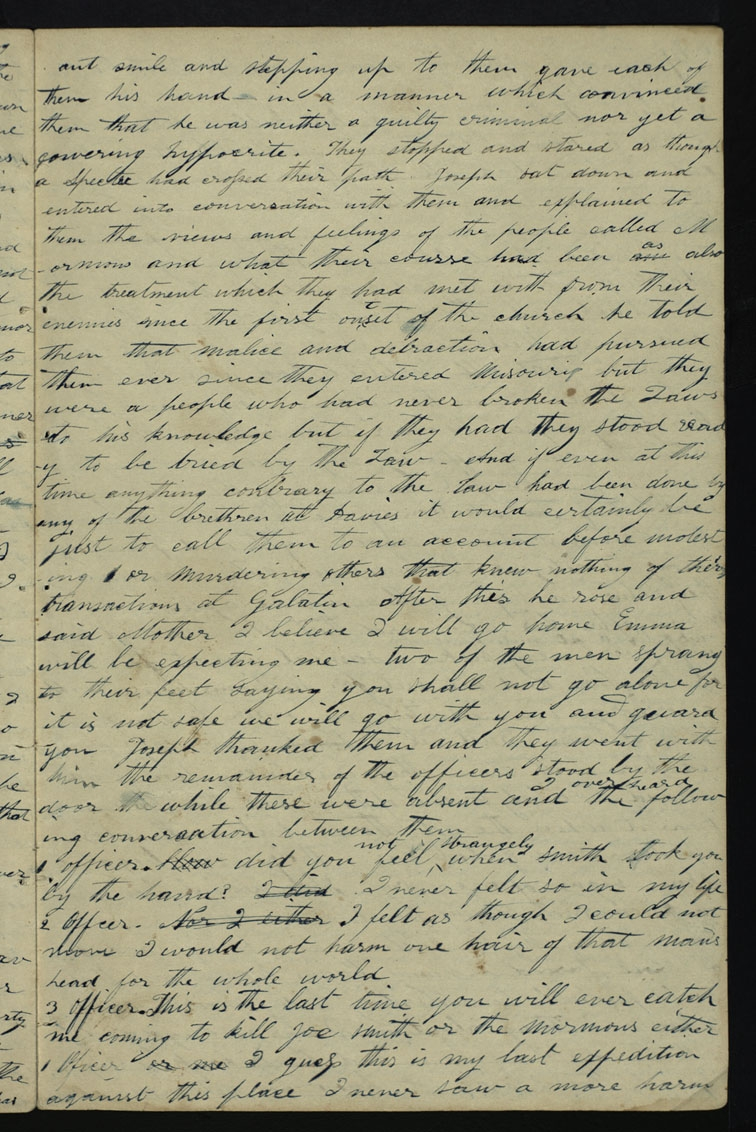 ant smile and stepping up to them gave each of
them his hand in a manner which convinced
them that he was neither a guilty criminal nor yet a
cowering hypocrite. They stopped and stared as though
a Spectre had crossed their path Joseph sat down and
entered into conversation with them and explained to
them the views and feelings of the people called M
-ormons and what their course had been as also
the treatment which they had met with from their
enemies since the first onset of the church he told
them that malice and detraction had pursued
them ever since they entered Misouri but they
were a people who had never broken the Laws
to his knowledge but if they had they stood read
-y to be tried by the Law - And if even at this
time anything contrary to the law had been done by
any of the brethren at Davies it would certainly be
just to call them to an account before molest
-ing or murdering others that knew nothing of these
transactions at Galatin After this he rose and
said Mother I believe I will go home Emma
will be expecting me - two of the men sprang
to their feet saying you shall not go alone for
it is not safe we will go with you and guard
you Joseph thanked them and they went with
him the remainder of the officers stood by the
door while these were absent and I overheard the follow
ing conversation between them
1 officer. How did you not feel strangely when smith took you
by the hand? I did I never felt so in my life
2 Officer. Nor I either I felt as though I could not
move I would not harm one hair of that man's
head for the whole world
3 Officer. This is the last time you will ever catch
me coming to kill Joe smith or the mormons either
1 Officer or me I guess this is my last expedition
against this place I never saw a more harm